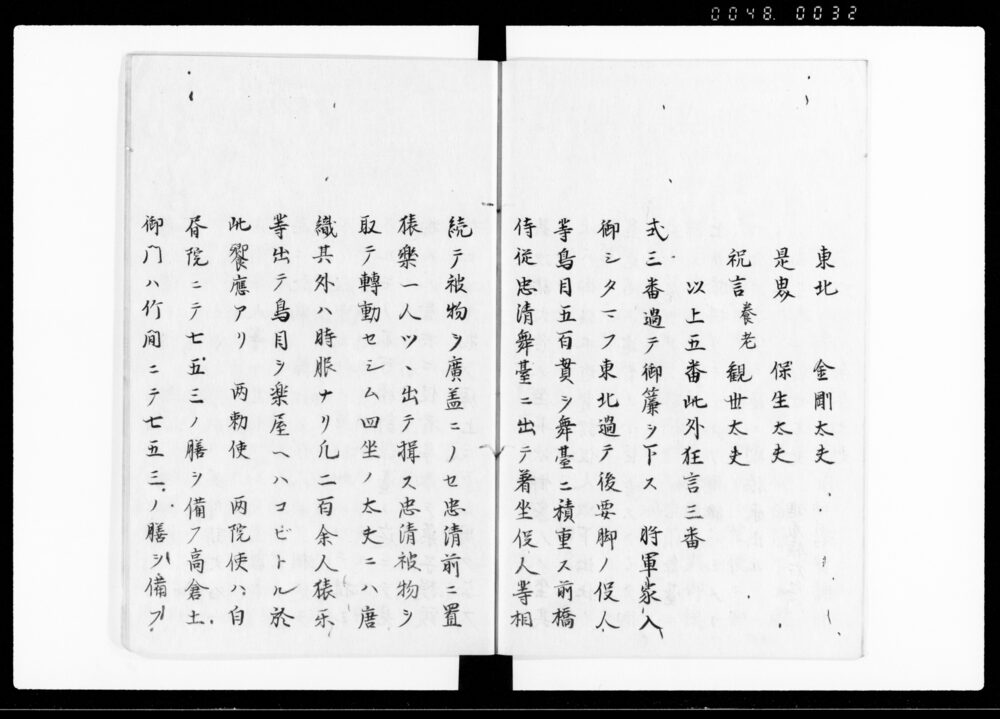 0048. 0032
東北　金剛太夫
是界　保生太夫
祝言養老　観世太夫
以上五番此外狂言三番
式三番過テ御簾ヲ下ス　将軍家入
御シタマフ東北過テ後要脚ノ役人
等鳥目五百貫ヲ舞臺ニ積重ス前橋
侍従忠清舞臺ニ出テ著坐役人等相
続テ被物ヲ廣盖ニノセ忠清前ニ置
猿樂一人ツヽ出テ揖ス忠清被物ヲ
取テ轉動セシム四坐ノ太夫ニハ唐
織其外ハ時服ナリ凡二百余人猿乐
等出テ鳥目ヲ楽屋ヘハコビトル於
此饗應アリ　両勅使　両院使ハ白
脊院ニテ七五三ノ膳ヲ備フ高倉土
御門ハ竹間ニテ七五三ノ膳ヲ備フ